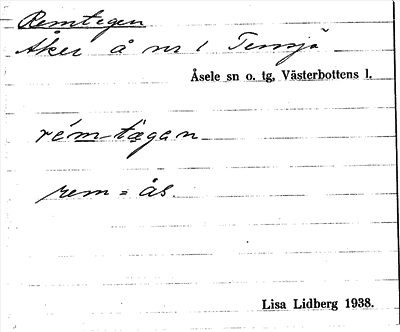 Remtegen
Åker å nr 1 Tensjö
Åsele sn o. tg, Västerbottens l.
rém-tægan
rem = ås.
Lisa Lidberg 1938.